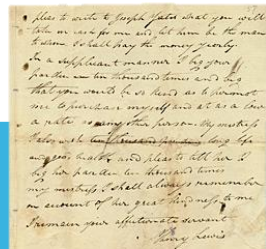 pleas to write to Joseph Yates what you will
take in cash for me and let him be the man
to whom I shall pay the money yearly
In a suppliant manner I beg your
pardon ten thousand times and beg
that you would be so kind as to permit
me to purchase myself and at as a low
a rate as any other person. My mistress
I also wish ten thousand long life
and good health and pleas to tell her I
beg her pardon ten thousand times
my mistress I shall always remember
on account of her great kindness to me
I remain your affectionate servant
Henry Lewis